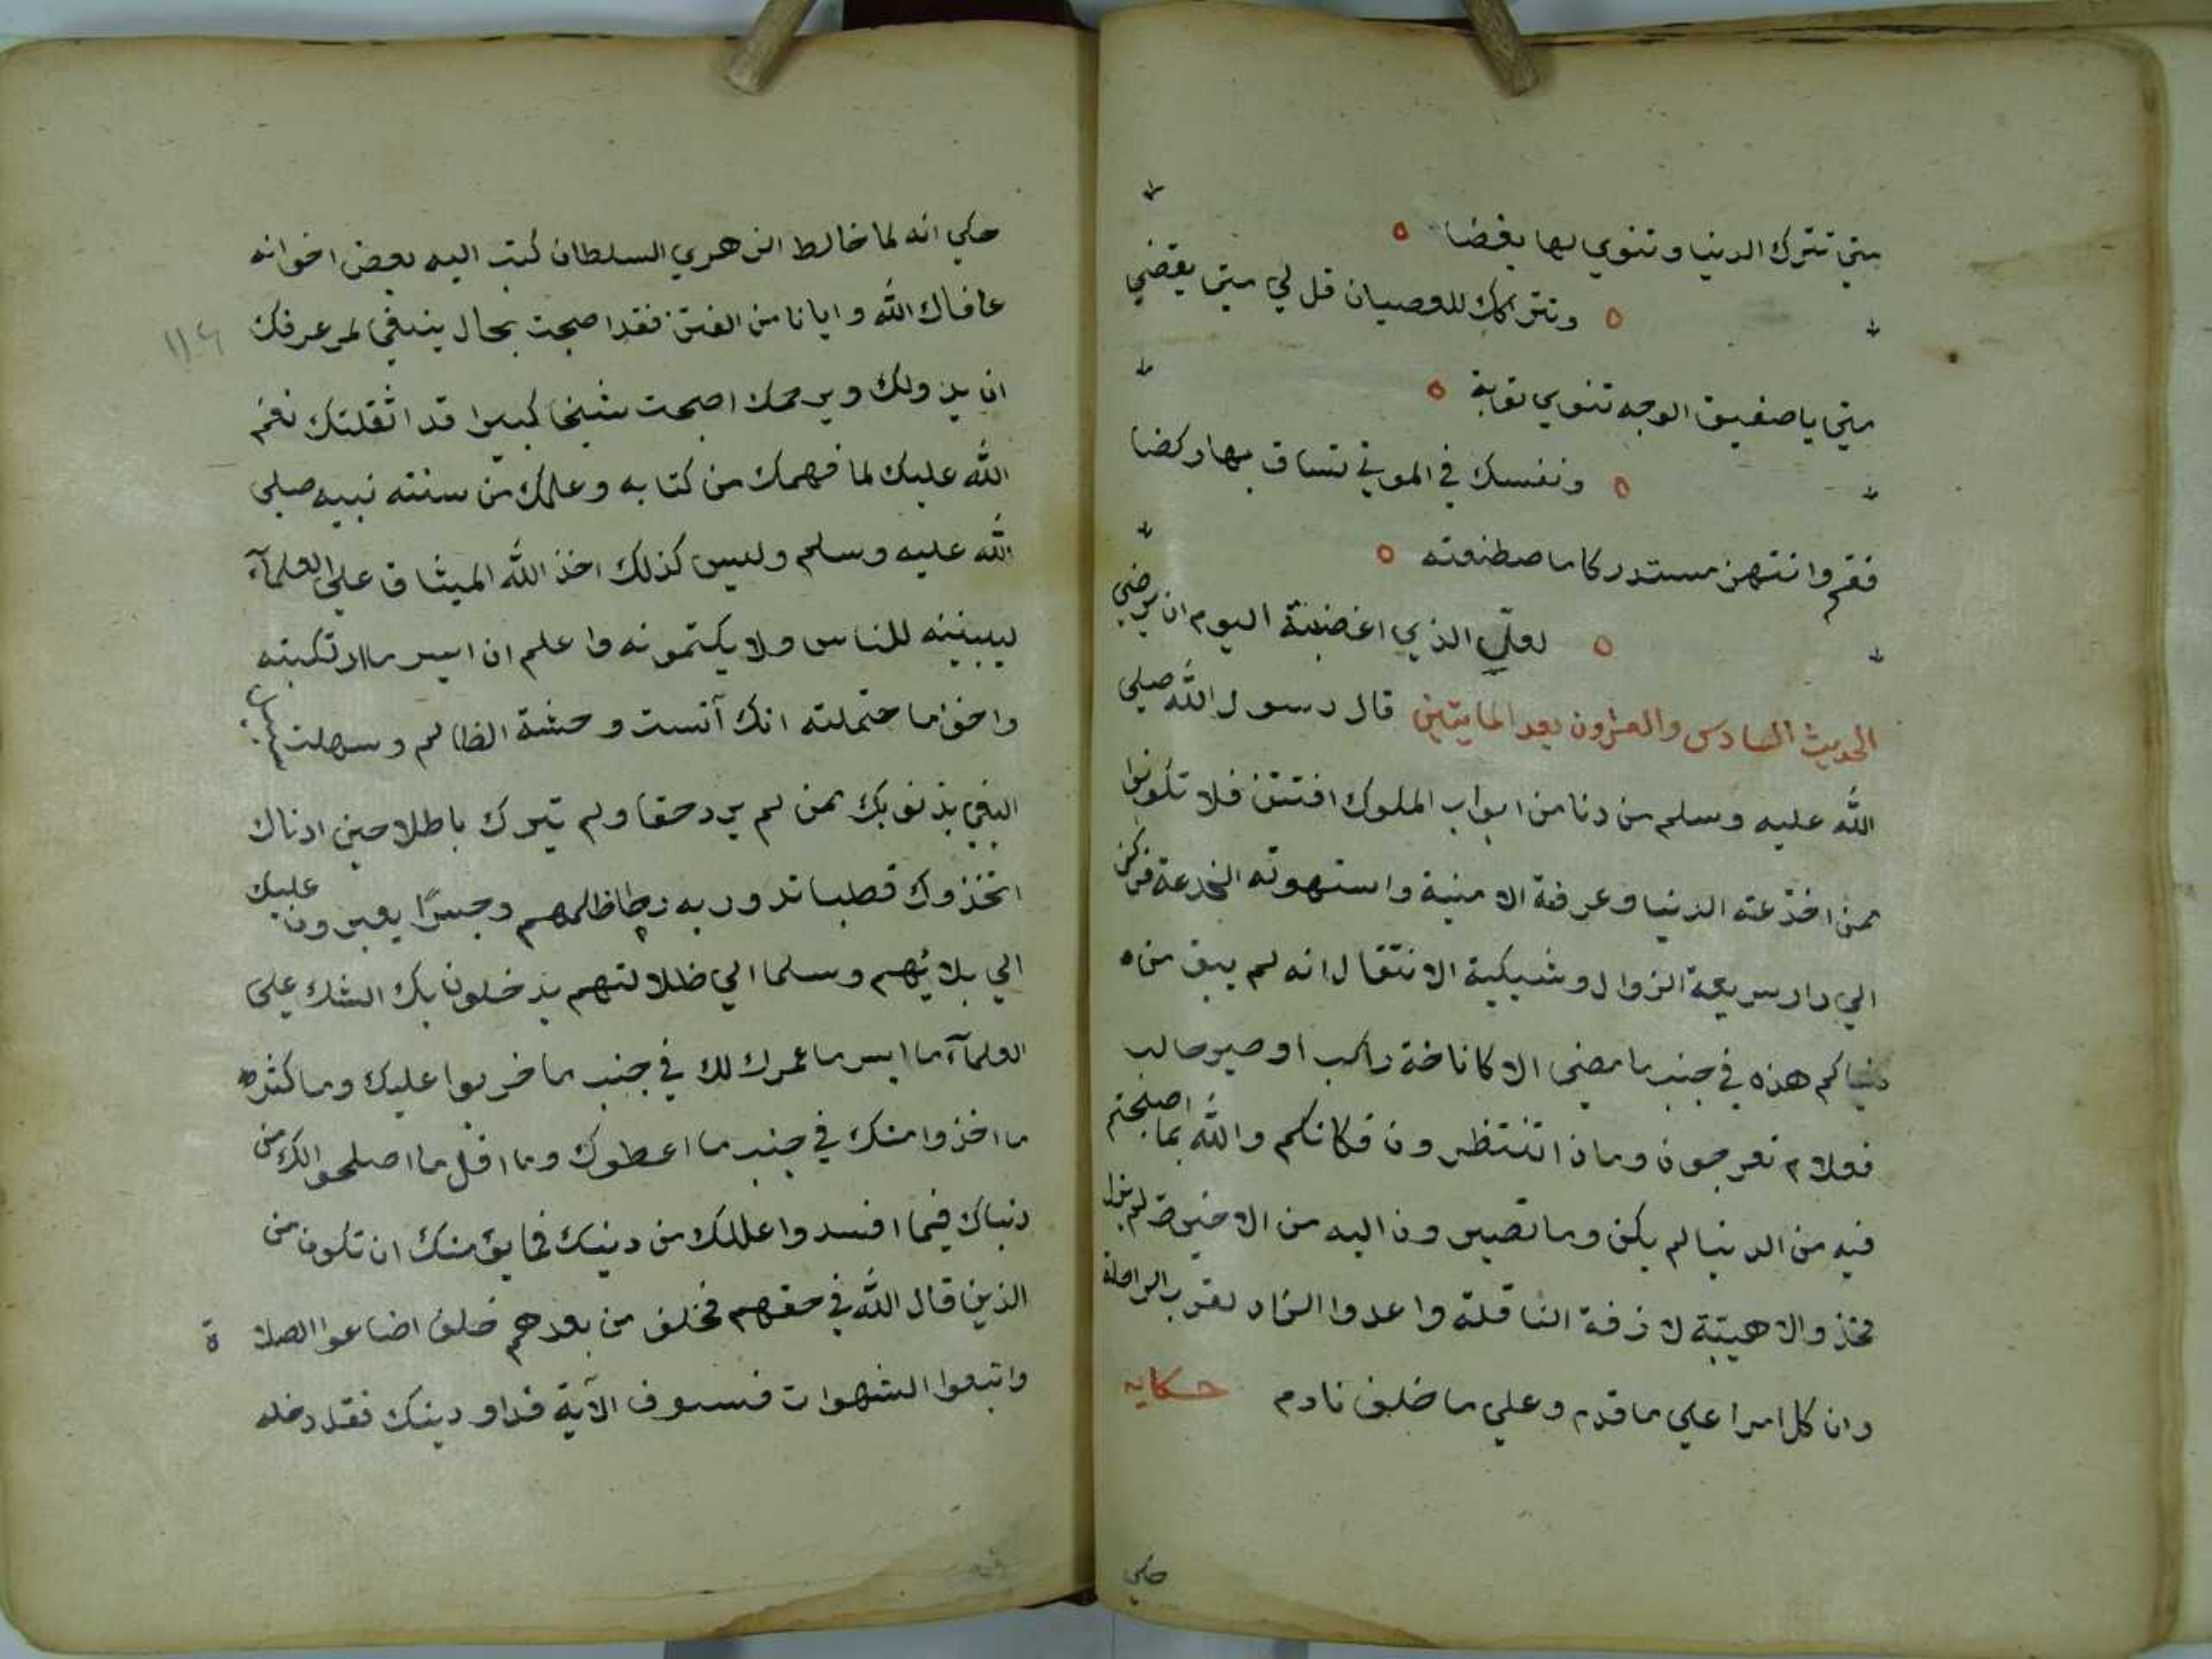 متي تترك الدنيا وتنوي لها بغضا
وتترك للعصيان قل لي متي يقضي
متي يا صفيق الوجه تنوي توبة
ونفسك في الموتي تساق بها ركضا
فقم وانتهز مستدركا ما صطنعته
لعلي الذي اغضبته اليوم ان يرضي
الحديث السادس والعشرون بعد المايتين قال رسول الله صلي
الله عليه وسلم من دنا من ابواب الملوك افتتن فلا تكونوا
ممن اخذعته الدنيا وعرفة الامنية واستهوته الخدعة فركن
الي دار سريعة الزوال وشيكية الانتقال انه لم يبق من ه
دنياكم هذه في جنب ما مضي الا كاناخة راكب او صبر حالب
فعلام تعرجون وماذا تنتظرون فكانكم والله بما اصبحتم
فيه من الدنيا لم يكن وما تصيرون اليه من الاخيرة لم يزل
فخذوا الاهيبة لازفة الناقلة واعدوا الزاد لقرب الراحلة
وان كل امرا علي ما قدم وعلي ما خلف نادم حكاية
حكي
حكي انه لما خالط الزهري السلطان كتب اليه بعض اخوانه
عافاك الله وايانا من الفتن فقد اصبحت بحال ينبغي لمر عرفك
ان يدولك ويرحمك اصبحت شيخا كبيرا قد اثقلتك نعم
الله عليك لما فهمك من كتابه وعلمك من سنته نبيه صلي
الله عليه وسلم وليس كذلك اخذ الله الميثاق علي العلمآء
ليبيننه للناس ولا يكتمونه واعلم ان ايسر ما ارتكبته
واخف ما حتملته انك آنست وحشة الظالم وسهلت سبيل
البغي بذنوبك ممن لم يرد حقا ولم تيرك باطلا حين ادناك
اتخذوك قطبا تدور به رحا ظلمهم وجسرًا يعبرون عليك
الي بلائهم وسلما الي ظلالتهم يدخلون بك الشك علي
العلمآء ما ايسر ما عمرك لك في جنب ما خربوا عليك وما كثره
ما اخذوا منك في جنب ما اعطوك وما اقل ما اصلحوا لك من
دنياك فيما افسدوا عللك من دينك فما يؤمنك ان تكون من
الذين قال الله في حقهم فخلف من بعدهم خلف اضاعوا الصلاة
واتبعوا الشهوات فسوف الآية فداو دينك فقد دخله